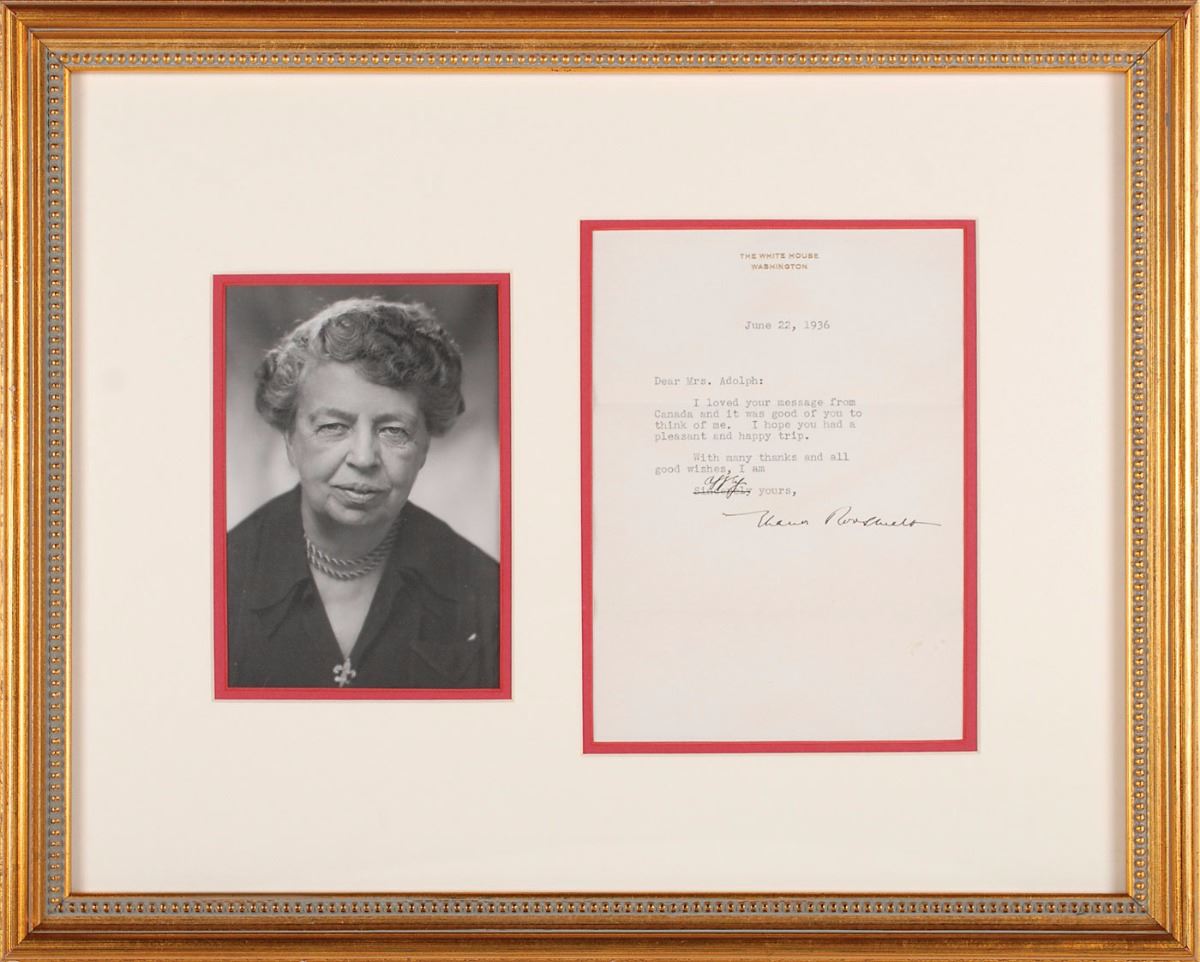 THE WHITE HOUSE
WASHINGTON
June 22, 1936
Dear Mrs. Adolph:
I loved your message from
Canada and it was good of you to
think of me. I hope you had a
pleasant and happy trip.
With many thanks and all
good wishes, I am
Sincerely yours,
Eleanor Roosevelt